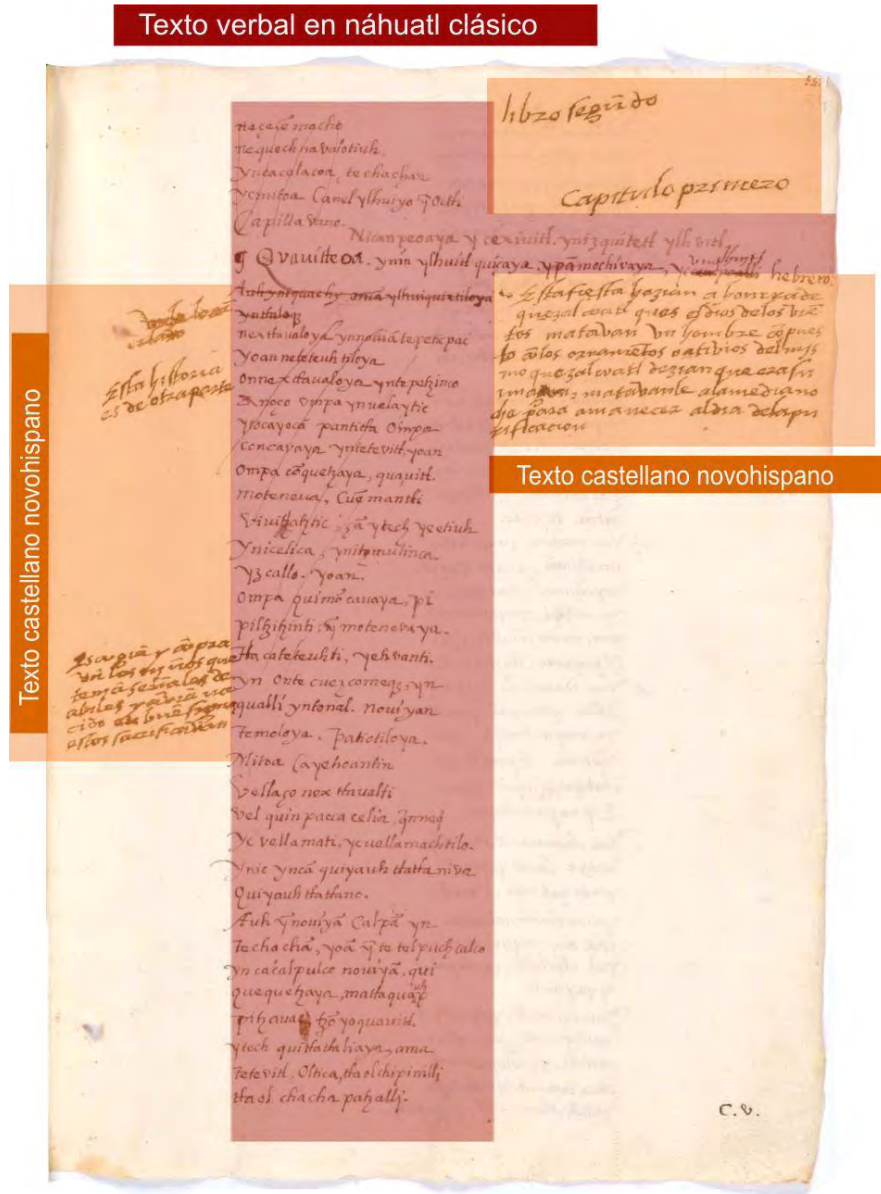 Texto verbal en náhuatl clásico
libro segũdo
Capitulo primero
neçeẽ macho
nequech navalotiuh.
yntacolacoa, te chachan
ycmitoa Canel ylhuiyo
Capilla vino.
Nican peoaya y ce xiuitl. ynizquitetl ylhuitl
Qvauitleoa. ynin ylhuitl quiçaya, ypã mochivaya, hebrero.
Auh yniquachy omã ylhuiquixtiloya
yntlaloq̃
nextlavaloya ynnoviã tepeticpac
Yoan neteteuhtiloya
onnextlavaloya yntepetzinco
Anoço vmpa ynuelaytic
ytocayocã pantitlã Ompa
concavaya ynitetevitl, yoan
Ompa cõquetzaya, quavitl.
moteneva, Cuẽmantli
vivitzatztic, çã ytech yeetiuh
Ynicelica, ynitzmulinca
yzcallo. yoan.
Ompa quimõcavaya, pi
pilhtzitzinti, q̃ motenevaya.
tlacateteuhti, yehvanti.
yn Onte cuezcomeq̃, yn
qualli yntonal. noviyan
temoloya. Patiotiloya.
Mitoa Cayehoantin
Vellaço nextlavalti
vel quin pacca celia, q̃nneq̃
yc vellamati, yc vellamachtilo.
Ynic yncã quiyauhtlatlaniva
Quiyauhtlatlano.
Auh q̃noviyã Calpã yn
techachã, yoã q̃ te telpuchcalco
yn cacalpulco noviyã, qui
quequetzaya, matlaquauh
pitzavac tzõyoquavitl.
ytech quitlatlaliaya, ama
tetevitl. Oltica, tlaolchipinilli
tlaol chachapatzalli.
Esta fiesta hazian a honrra de
queçalcoatl ques el dios de los viẽ
tos matavan vn hombre cõpues
to cõ los ornamẽtos o ativios del mis
mo queçalcoatl dezian que era su
matavanle a la media no
che para amanecer al dia de la pu
rificacion
Esta historia
es de otra parte
Texto castellano novohispano
Texto castellano novohispano
Escogiã y cõpra
van los niños que
teniã señales de
abiles y aviã na
cido en buẽ signo
estos sacrificavan
C.v.